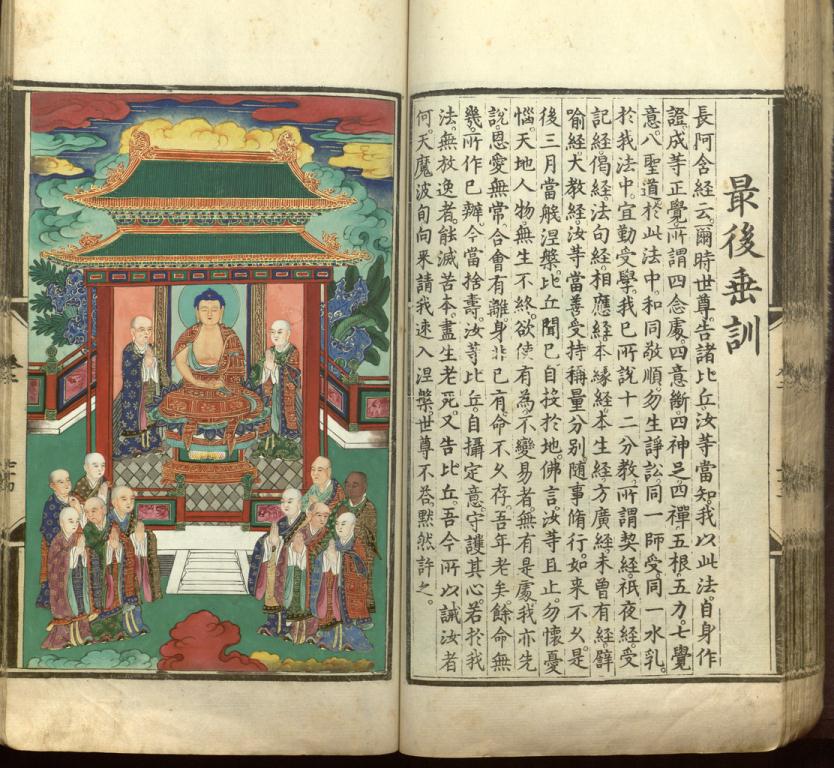 最後垂訓
長阿含經云。爾時世尊告諸比丘。汝等當知。我以此法自身作
證成等正覺。所謂四念處。四意斷。四神足。四禪五根。五力。七覺
意。八聖道。於此法中。和同敬順。勿生諍訟。同一師受。同一水乳。
於我法中。宜勤受學。我已所說十二分教。所謂契經。祇夜經。受
記經。偈經。法句經。相應經。本緣經。本生經。方廣經。未曾有經。譬
喻經。大教經。汝等當善受持。稱量分別。隨事脩行。如來不久。是
後三月。當般涅槃。比丘聞已。自投於地。佛言。汝等且止。勿懷憂
惱。天地人物。無生不終。欲使有為。不變易者。無有是處。我亦先
說。恩愛無常。合會有離。身非己有。命不久存。吾年老矣。餘命無
幾。所作已辦。今當捨壽。汝等比丘。自攝定意。守護其心。若於我
法。無放逸者。能滅苦本。盡生老死。又告比丘。吾今所以誡汝者
何。天魔波旬向來請我。速入涅槃。世尊不荅。默然許之。